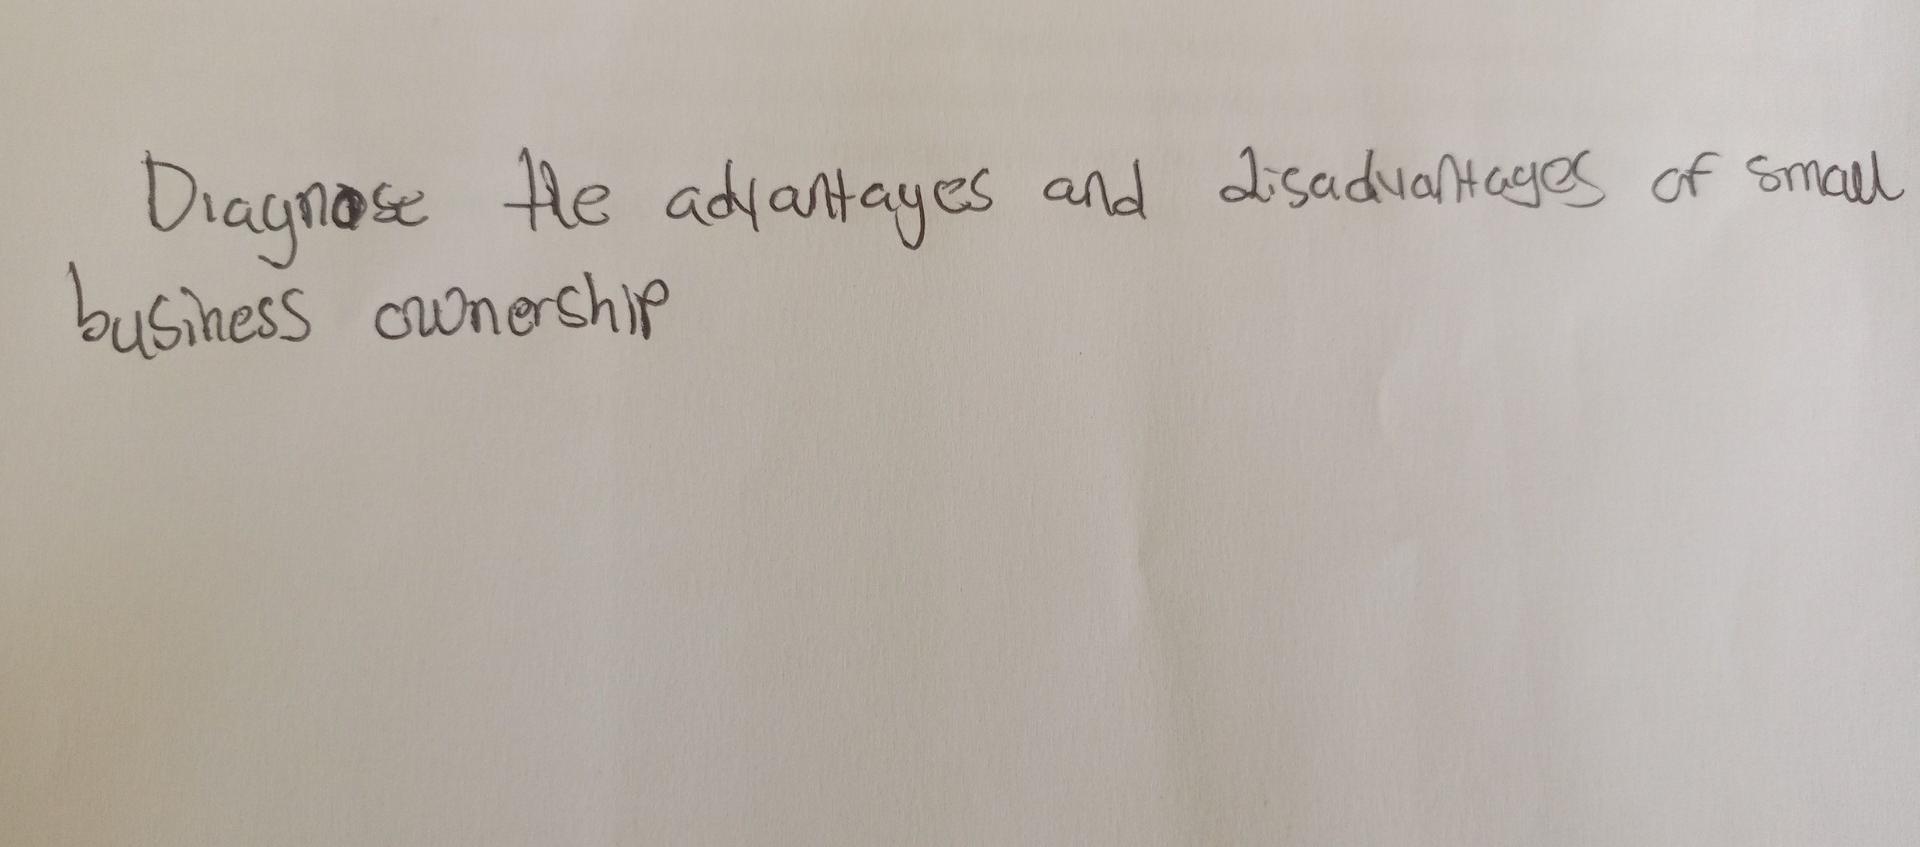 Diagnose the advantages and disadvantages of small
business ownership